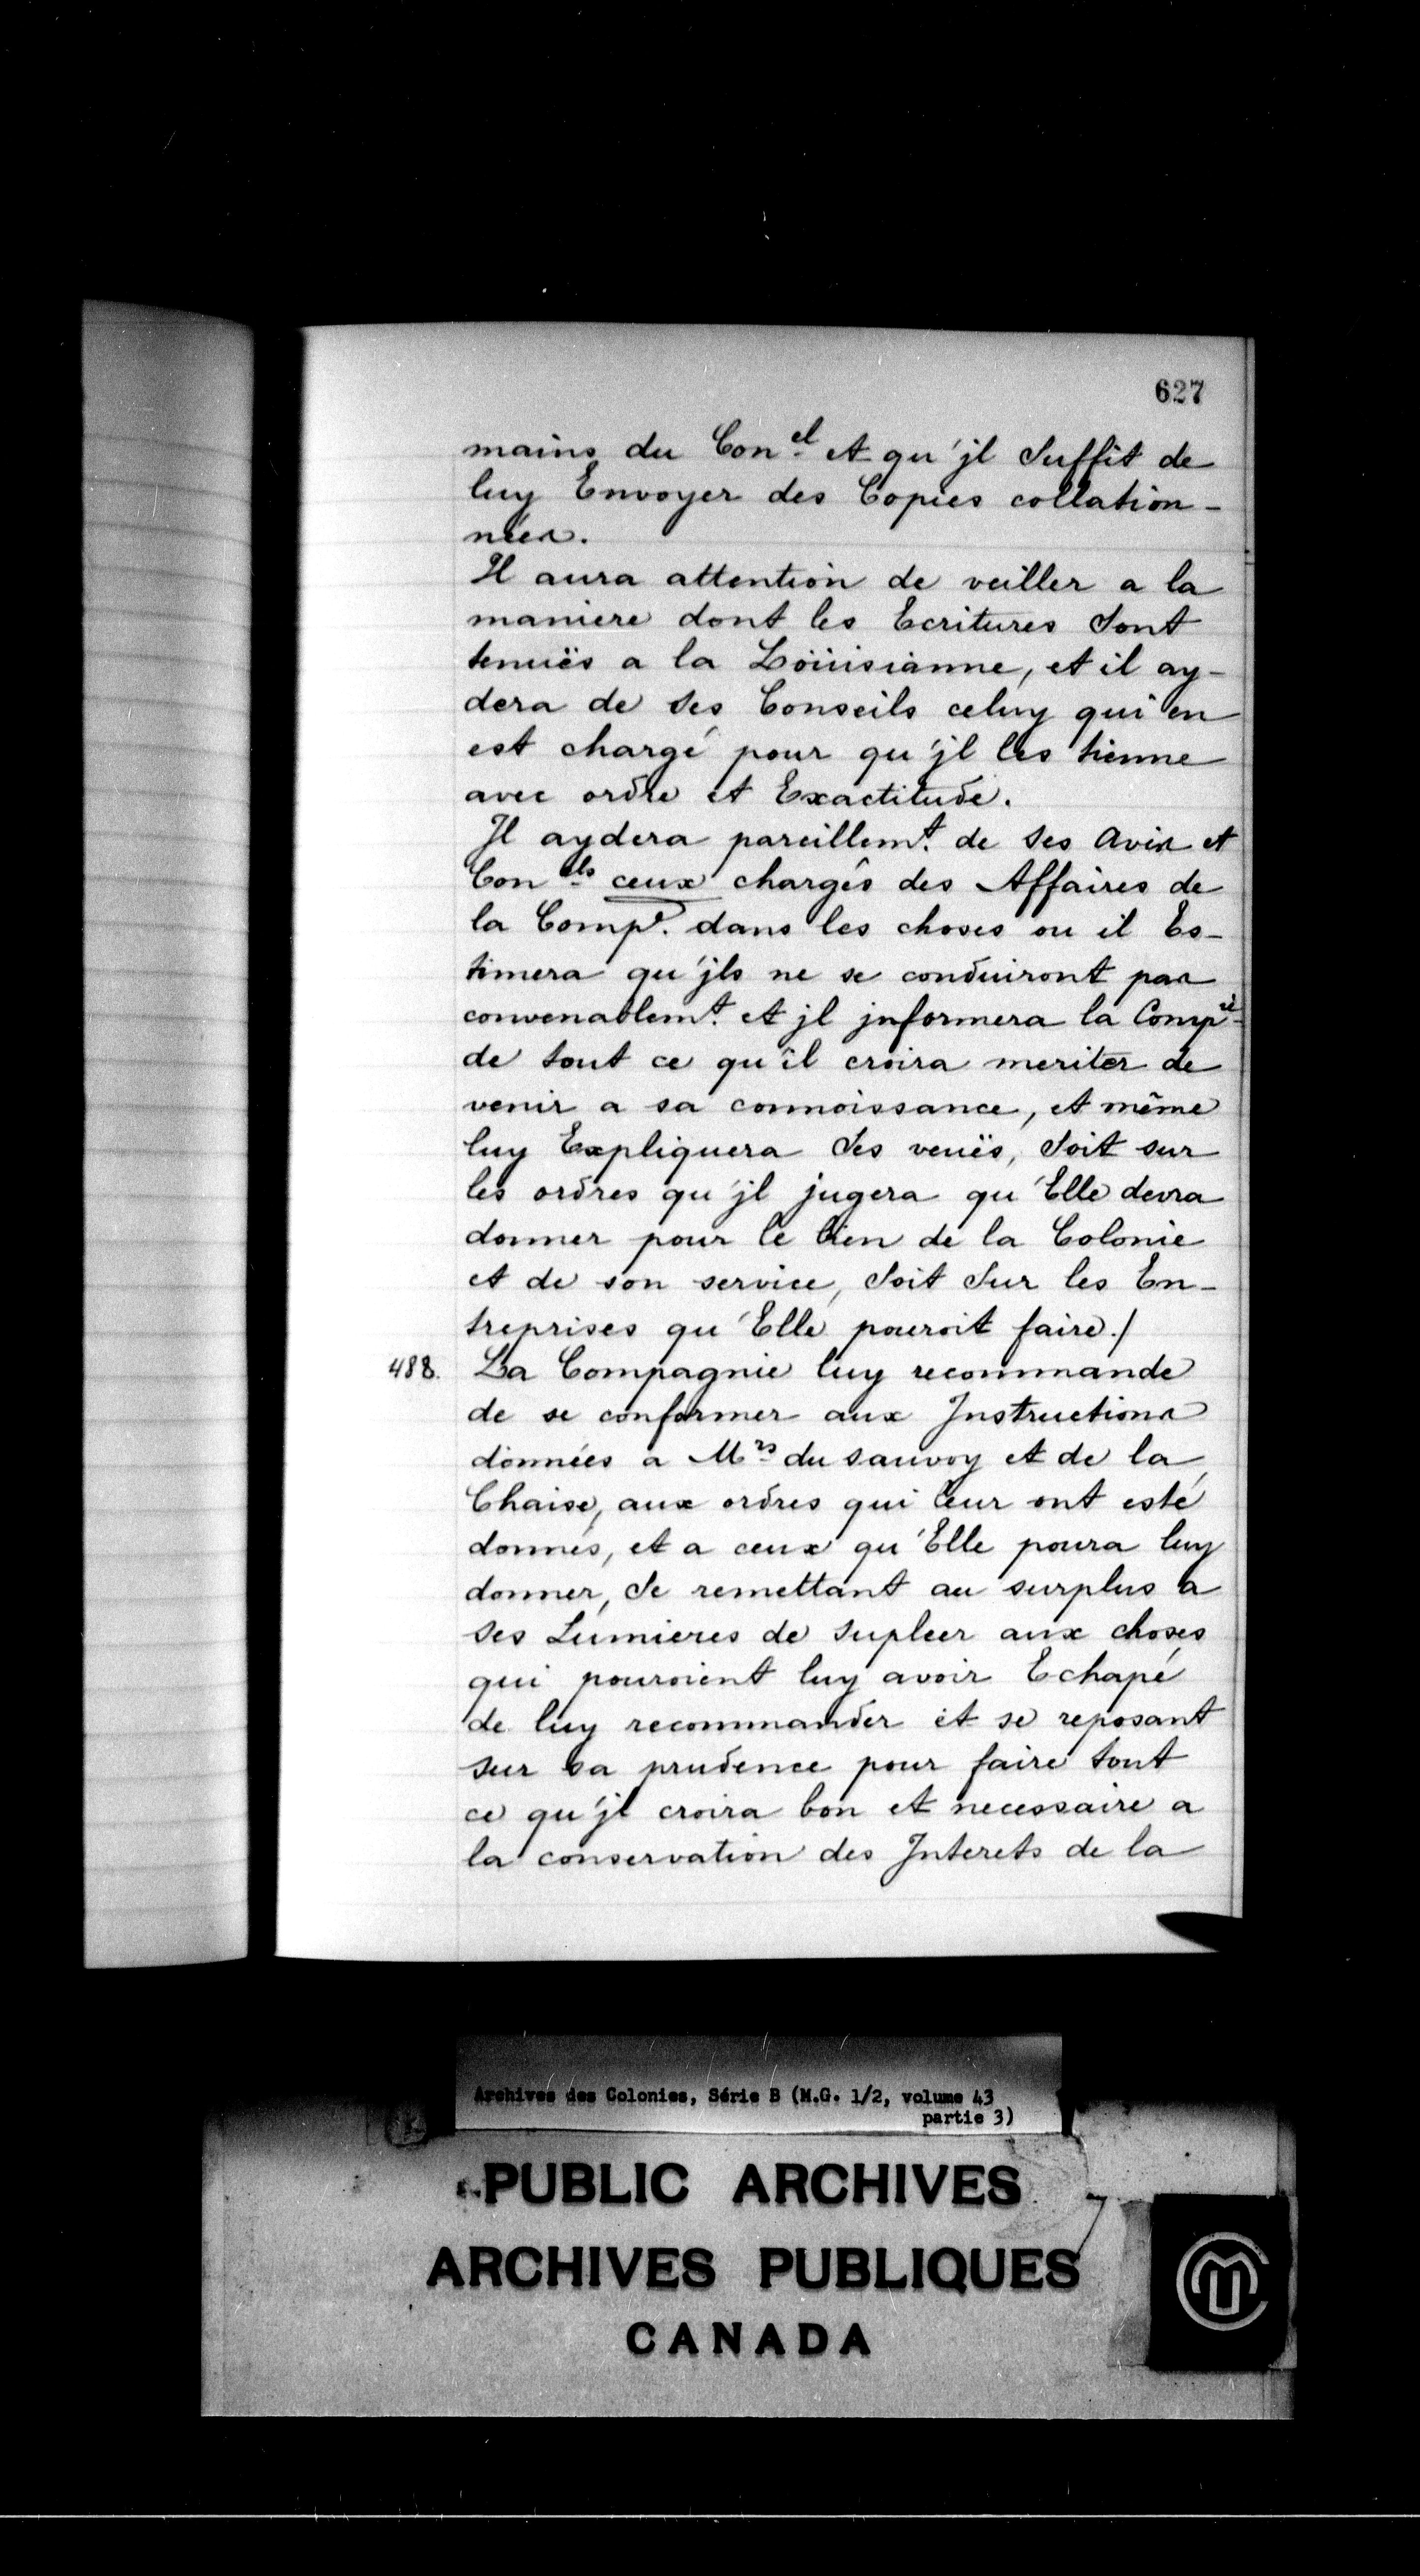 627
mains du Con.el et qu'jl Suffit de
luy Envoyer des Copies collation-
nées.
Il aura attention de veiller a la
maniere dont les Ecritures Sont
tenuës a la Loüisianne, et il ay-
dera de Ses Conseils celuy qui en
est chargé pour qu'jl les tienne
avec ordre et Exactitude.
Il aydera pareillemt. de Ses Avis et
Con.els ceux chargés des Affaires de
la Compe. dans les choses ou il Es-
timera qu'jls ne se conduiront pas
convenablemt. et jl jnformera la Compie
de tout ce qu'il croira meriter de
venir a sa connoissance, et même
luy Expliquera Ses veuës, Soit sur
les ordres qu'jl jugera qu'Elle devra
donner pour le bien de la Colonie
et de son service, Soit Sur les En-
treprises qu'Elle pouroit faire./
488. La Compagnie luy recommande
de se conformer aux Instructions
données a Mrs du sauvoy et de la
Chaise, aux ordres qui leur ont esté
donnés, et a ceux qu'Elle poura luy
donner, Se remettant au surplus a
ses Lumieres de Supleer aux choses
qui pouroient luy avoir Echapé
de luy recommander et se reposant
sur sa prudence pour faire tout
ce qu'jl croira bon et necessaire a
la conservation des Interets de la
Archives des Colonies, Série B (M.G. 1/2, volume 43
partie 3)
PUBLIC ARCHIVES
ARCHIVES PUBLIQUES
CANADA